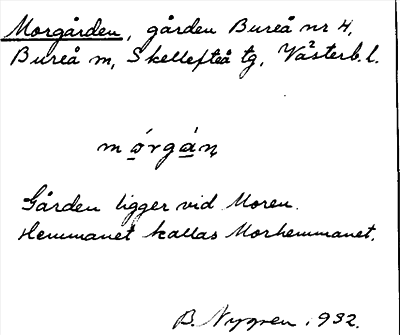 Morgården, gården Bureå nr 4,
Bureå m, Skellefteå tg, Västerb. l.
mo̲̒rga̲̒ṇ
Gården ligger vid Moren.
Hemmanet kallas Morhemmanet.
B. Nygren. 1932.